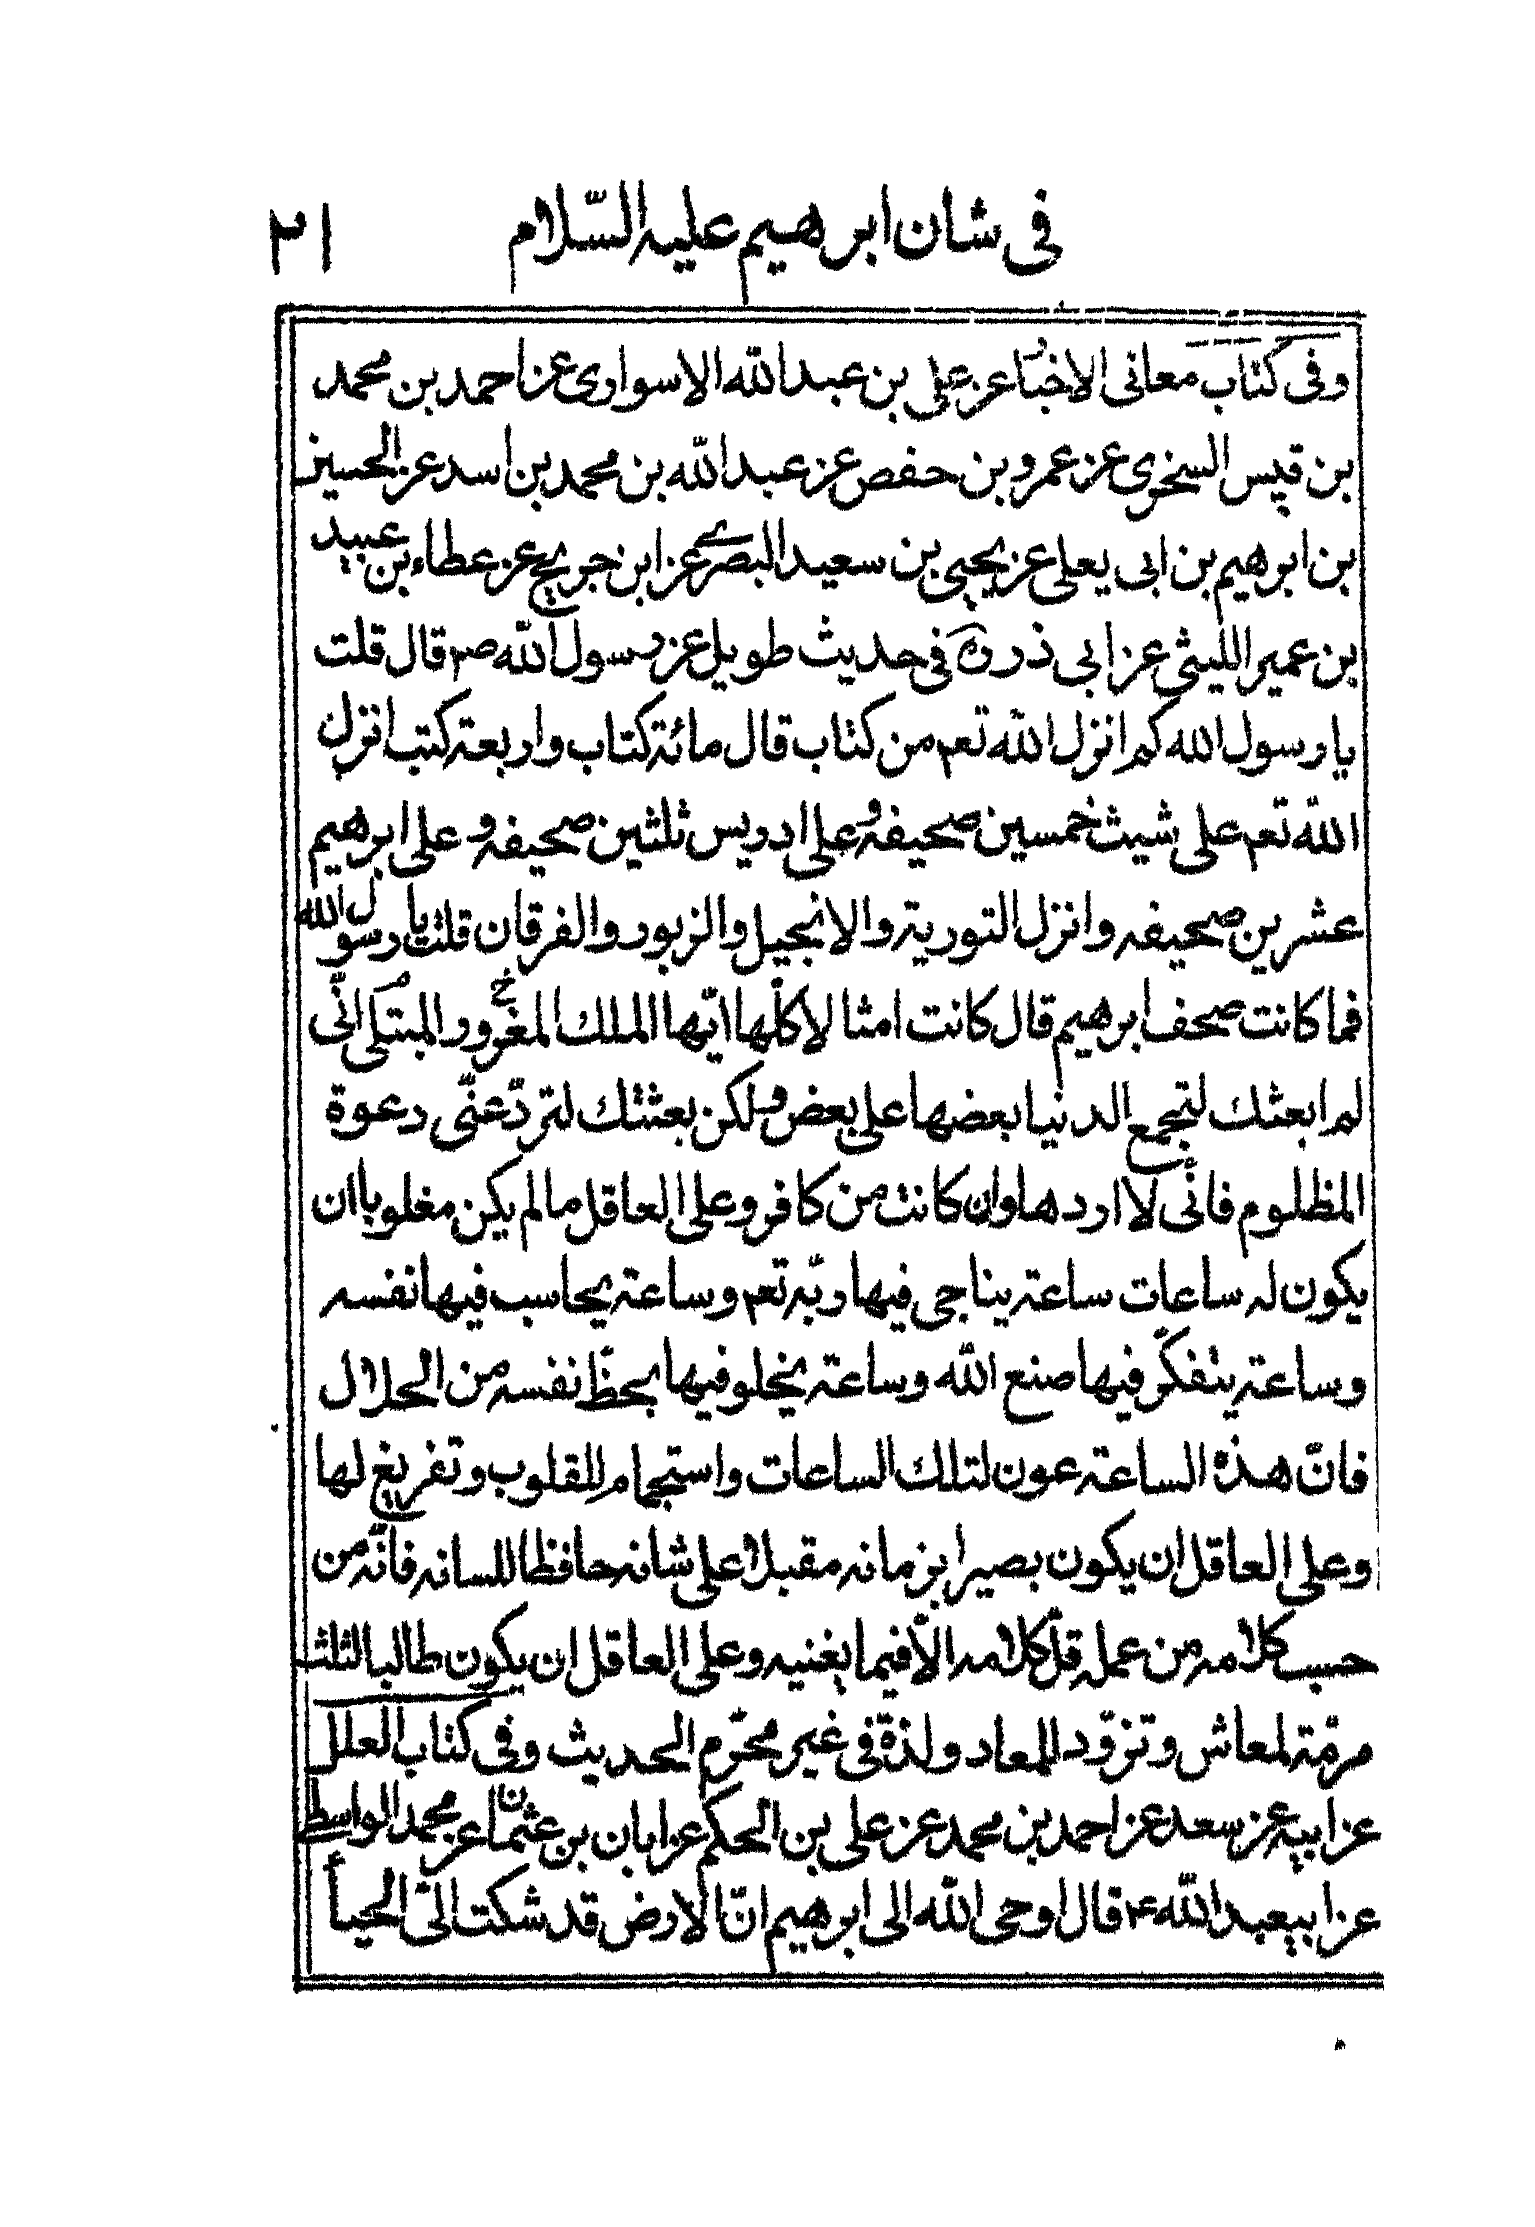 فى شان ابرهيم عليه السّلام ٢١
وفى كتاب معانى الاخبار عن على بن عبد الله الاسوارى عن احمد بن محمد
بن قيس السخرى عن عمرو بن حفص عن عبد الله بن محمد بن اسد عن الحسين
بن ابرهيم بن ابى يعلى عن يحيى بن سعيد البصرى عن ابن جريح عن عطاء بن عبيد
بن عمير الليثى عن ابى ذر ره فى حديث طويل عن رسول الله ص قال قلت
يا رسول الله كم انزل الله تعم من كتاب قال مائة كتاب واربعة كتب انزل
الله تعم على شيث خمسين صحيفه وعلى ادريس ثلثين صحيفه وعلى ابرهيم
عشرين صحيفه وانزل التورية والانجيل والزبور والفرقان قلت يا رسول الله
فما كانت صحف ابرهيم قال كانت امثالا كلّها ايّها الملك المغرور المبتلى انّى
لم ابعثك لتجمع الدنيا بعضها على بعض ولكن بعثتك لتردّ عنّى دعوة
المظلوم فانّى لا اردها وان كانت من كافر وعلى العاقل ما لم يكن مغلوبا ان
يكون له ساعات ساعة يناجى فيها ربّه تعم وساعة يحاسب فيها نفسه
وساعة يتفكّر فيها صنع الله وساعة يخلو فيها بحظّ نفسه من الحلال
فانّ هذه الساعة عون لتلك الساعات واستجمام للقلوب وتفريغ لها
وعلى العاقل ان يكون بصيرا بزمانه مقبلا على شانه حافظا للسانه فانّه من
حسب كلامه من عمله قلّ كلامه الّا فيما يغنيه وعلى العاقل ان يكون طالبا لثلث
مرمّة لمعاش وتزوّد لمعاد ولذة فى غير محرّم الحديث وفى كتاب العلل
عن ابيه عن سعد عن احمد بن محمد عن على بن الحكم عن ابان بن عثمان عن محمد الواسطى
عن ابيعبد الله ع قال اوحى الله الى ابرهيم انّ الارض قد شكت الىّ الحيأ